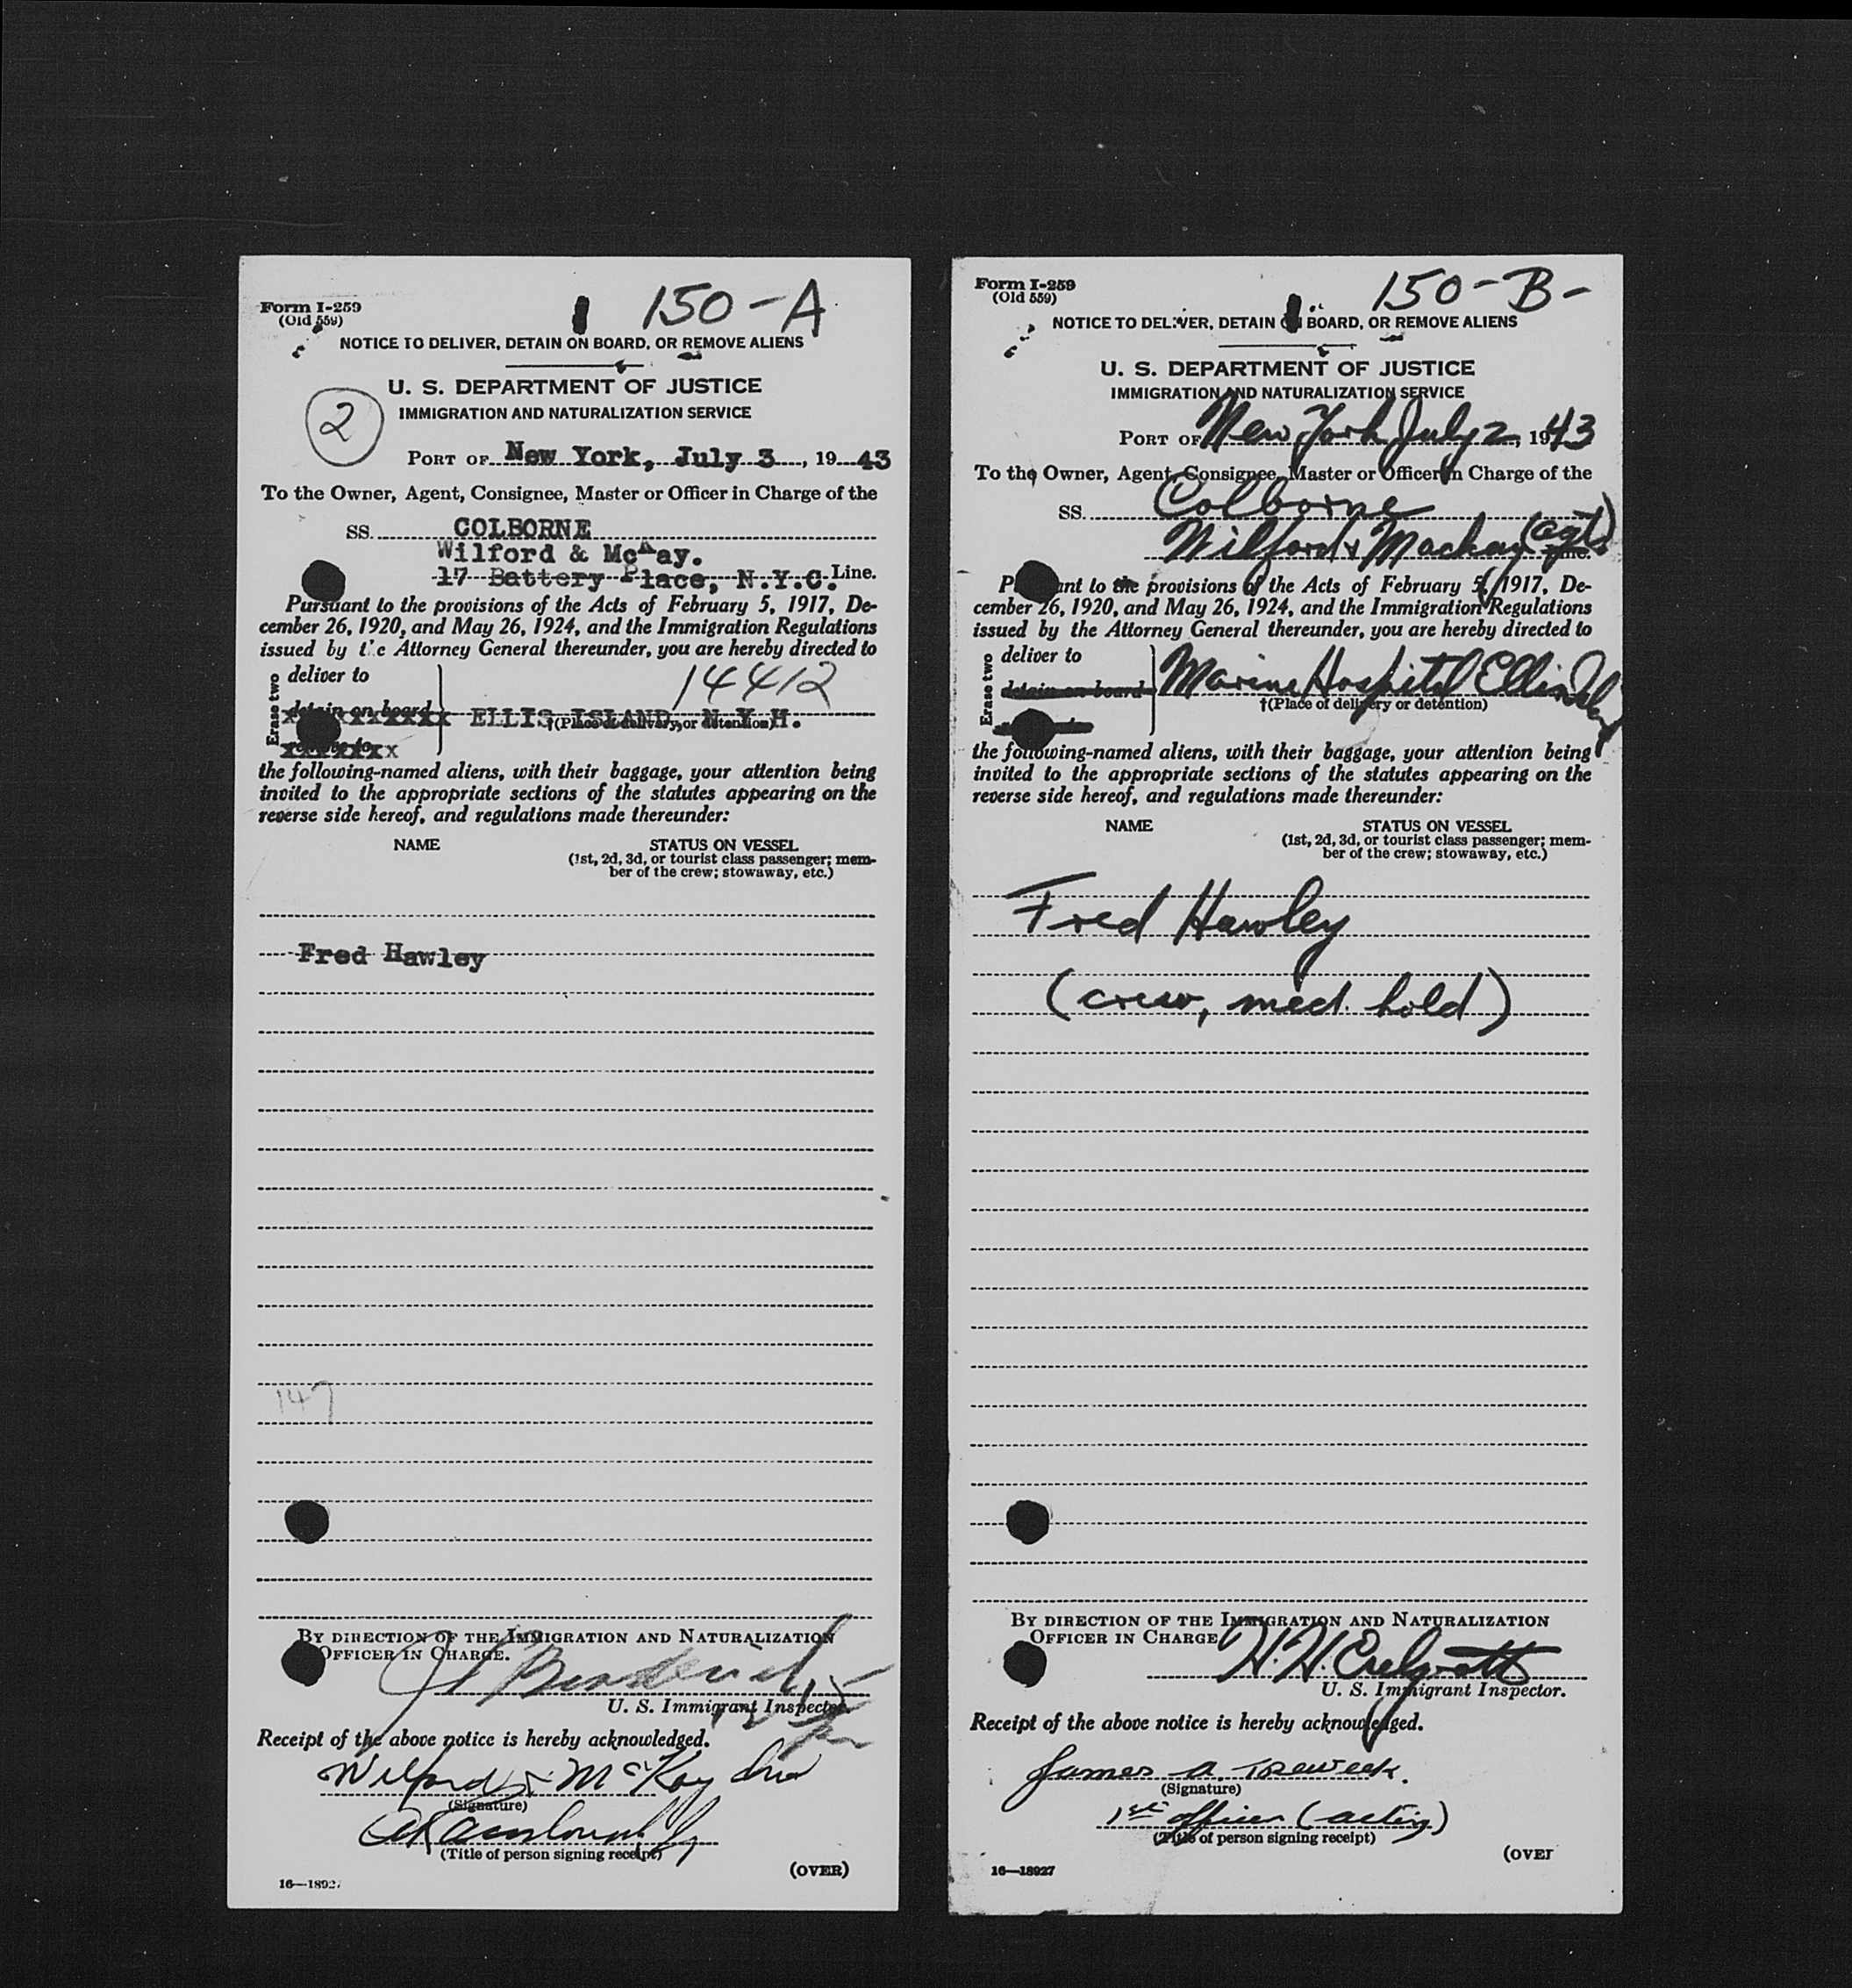 Form I-259
(Old 559)
150-A
NOTICE TO DELIVER, DETAIN ON BOARD, OR REMOVE ALIENS
U. S. DEPARTMENT OF JUSTICE
2
IMMIGRATION AND NATURALIZATION SERVICE
PORT OF New York, July 3, 1943
To the Owner, Agent, Consignee, Master or Officer in Charge of the
SS. COLBORNE
Wilford & McKay.
17 Battery Place, N.Y.C. Line.
Pursuant to the provisions of the Acts of February 5, 1917, De-
cember 26, 1920, and May 26, 1924, and the Immigration Regulations
issued by the Attorney General thereunder, you are hereby directed to
Erase two
deliver to
14412
detain on board
ELLIS ISLAND, N.Y.H.
†(Place of delivery or detention)
the following-named aliens, with their baggage, your attention being
invited to the appropriate sections of the statutes appearing on the
reverse side hereof, and regulations made thereunder:
NAME STATUS ON VESSEL
(1st, 2d, 3d, or tourist class passenger; mem-
ber of the crew; stowaway, etc.)
Fred Hawley
147
BY DIRECTION OF THE IMMIGRATION AND NATURALIZATION
OFFICER IN CHARGE.
U. S. Immigrant Inspector.
Receipt of the above notice is hereby acknowledged.
Wilford & McKay Inc
(Signature)
(Title of person signing receipt)
(OVER)
16—18927
Form I-259
(Old 559)
150-B-
NOTICE TO DELIVER, DETAIN ON BOARD, OR REMOVE ALIENS
U. S. DEPARTMENT OF JUSTICE
IMMIGRATION AND NATURALIZATION SERVICE
PORT OF New York July 2, 1943
To the Owner, Agent, Consignee, Master or Officer in Charge of the
SS. Colborne
Wilford & Mackay (agt) Line.
Pursuant to the provisions of the Acts of February 5, 1917, De-
cember 26, 1920, and May 26, 1924, and the Immigration Regulations
issued by the Attorney General thereunder, you are hereby directed to
Erase two
deliver to
detain on board
Marine Hospital Ellis Island
†(Place of delivery or detention)
the following-named aliens, with their baggage, your attention being
invited to the appropriate sections of the statutes appearing on the
reverse side hereof, and regulations made thereunder:
NAME STATUS ON VESSEL
(1st, 2d, 3d, or tourist class passenger; mem-
ber of the crew; stowaway, etc.)
Fred Hawley
(crew, med. hold)
BY DIRECTION OF THE IMMIGRATION AND NATURALIZATION
OFFICER IN CHARGE
H. H.
U. S. Immigrant Inspector.
Receipt of the above notice is hereby acknowledged.
James A. Treweek.
(Signature)
1st officer (acting)
(Title of person signing receipt)
(OVER
16—18927